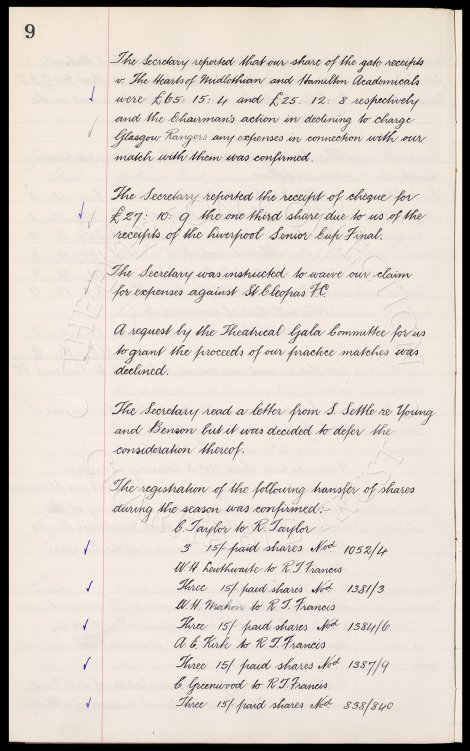 9
The Secretary reported that our share of the gate receipts
v. The Hearts of Midlothian and Hamilton Academicals
were £65: 15: 4 and £25: 12: 8 respectively
and the Chairman's action in declining to charge
Glasgow Rangers any expenses in connection with our
match with them was confirmed.
The Secretary reported the receipt of cheque for
£27: 10: 9 the one third share due to us of the
receipts of the Liverpool Senior Cup Final.
The Secretary was instructed to waive our claim
for expenses against St Cleopas F.C.
A request by the Theatrical Gala Committee for us
to grant the proceeds of our practice matches was
declined.
The Secretary read a letter from S. Settle re Young
and Benson but it was decided to defer the
consideration thereof.
The registration of the following transfer of shares
during the season was confirmed:-
C. Taylor to R. Taylor
3 15/- paid shares Nod 1052/4
W. H. Lewthwaite to R. T. Francis
Three 15/- paid shares Nod 1381/3
W. H. Mahon to R. T. Francis
Three 15/- paid shares Nod 1384/6
A. E. Kirk to R. T. Francis
Three 15/- paid shares Nod 1387/9
C. Greenwood to R. T. Francis
Three 15/- paid shares Nod 838/840